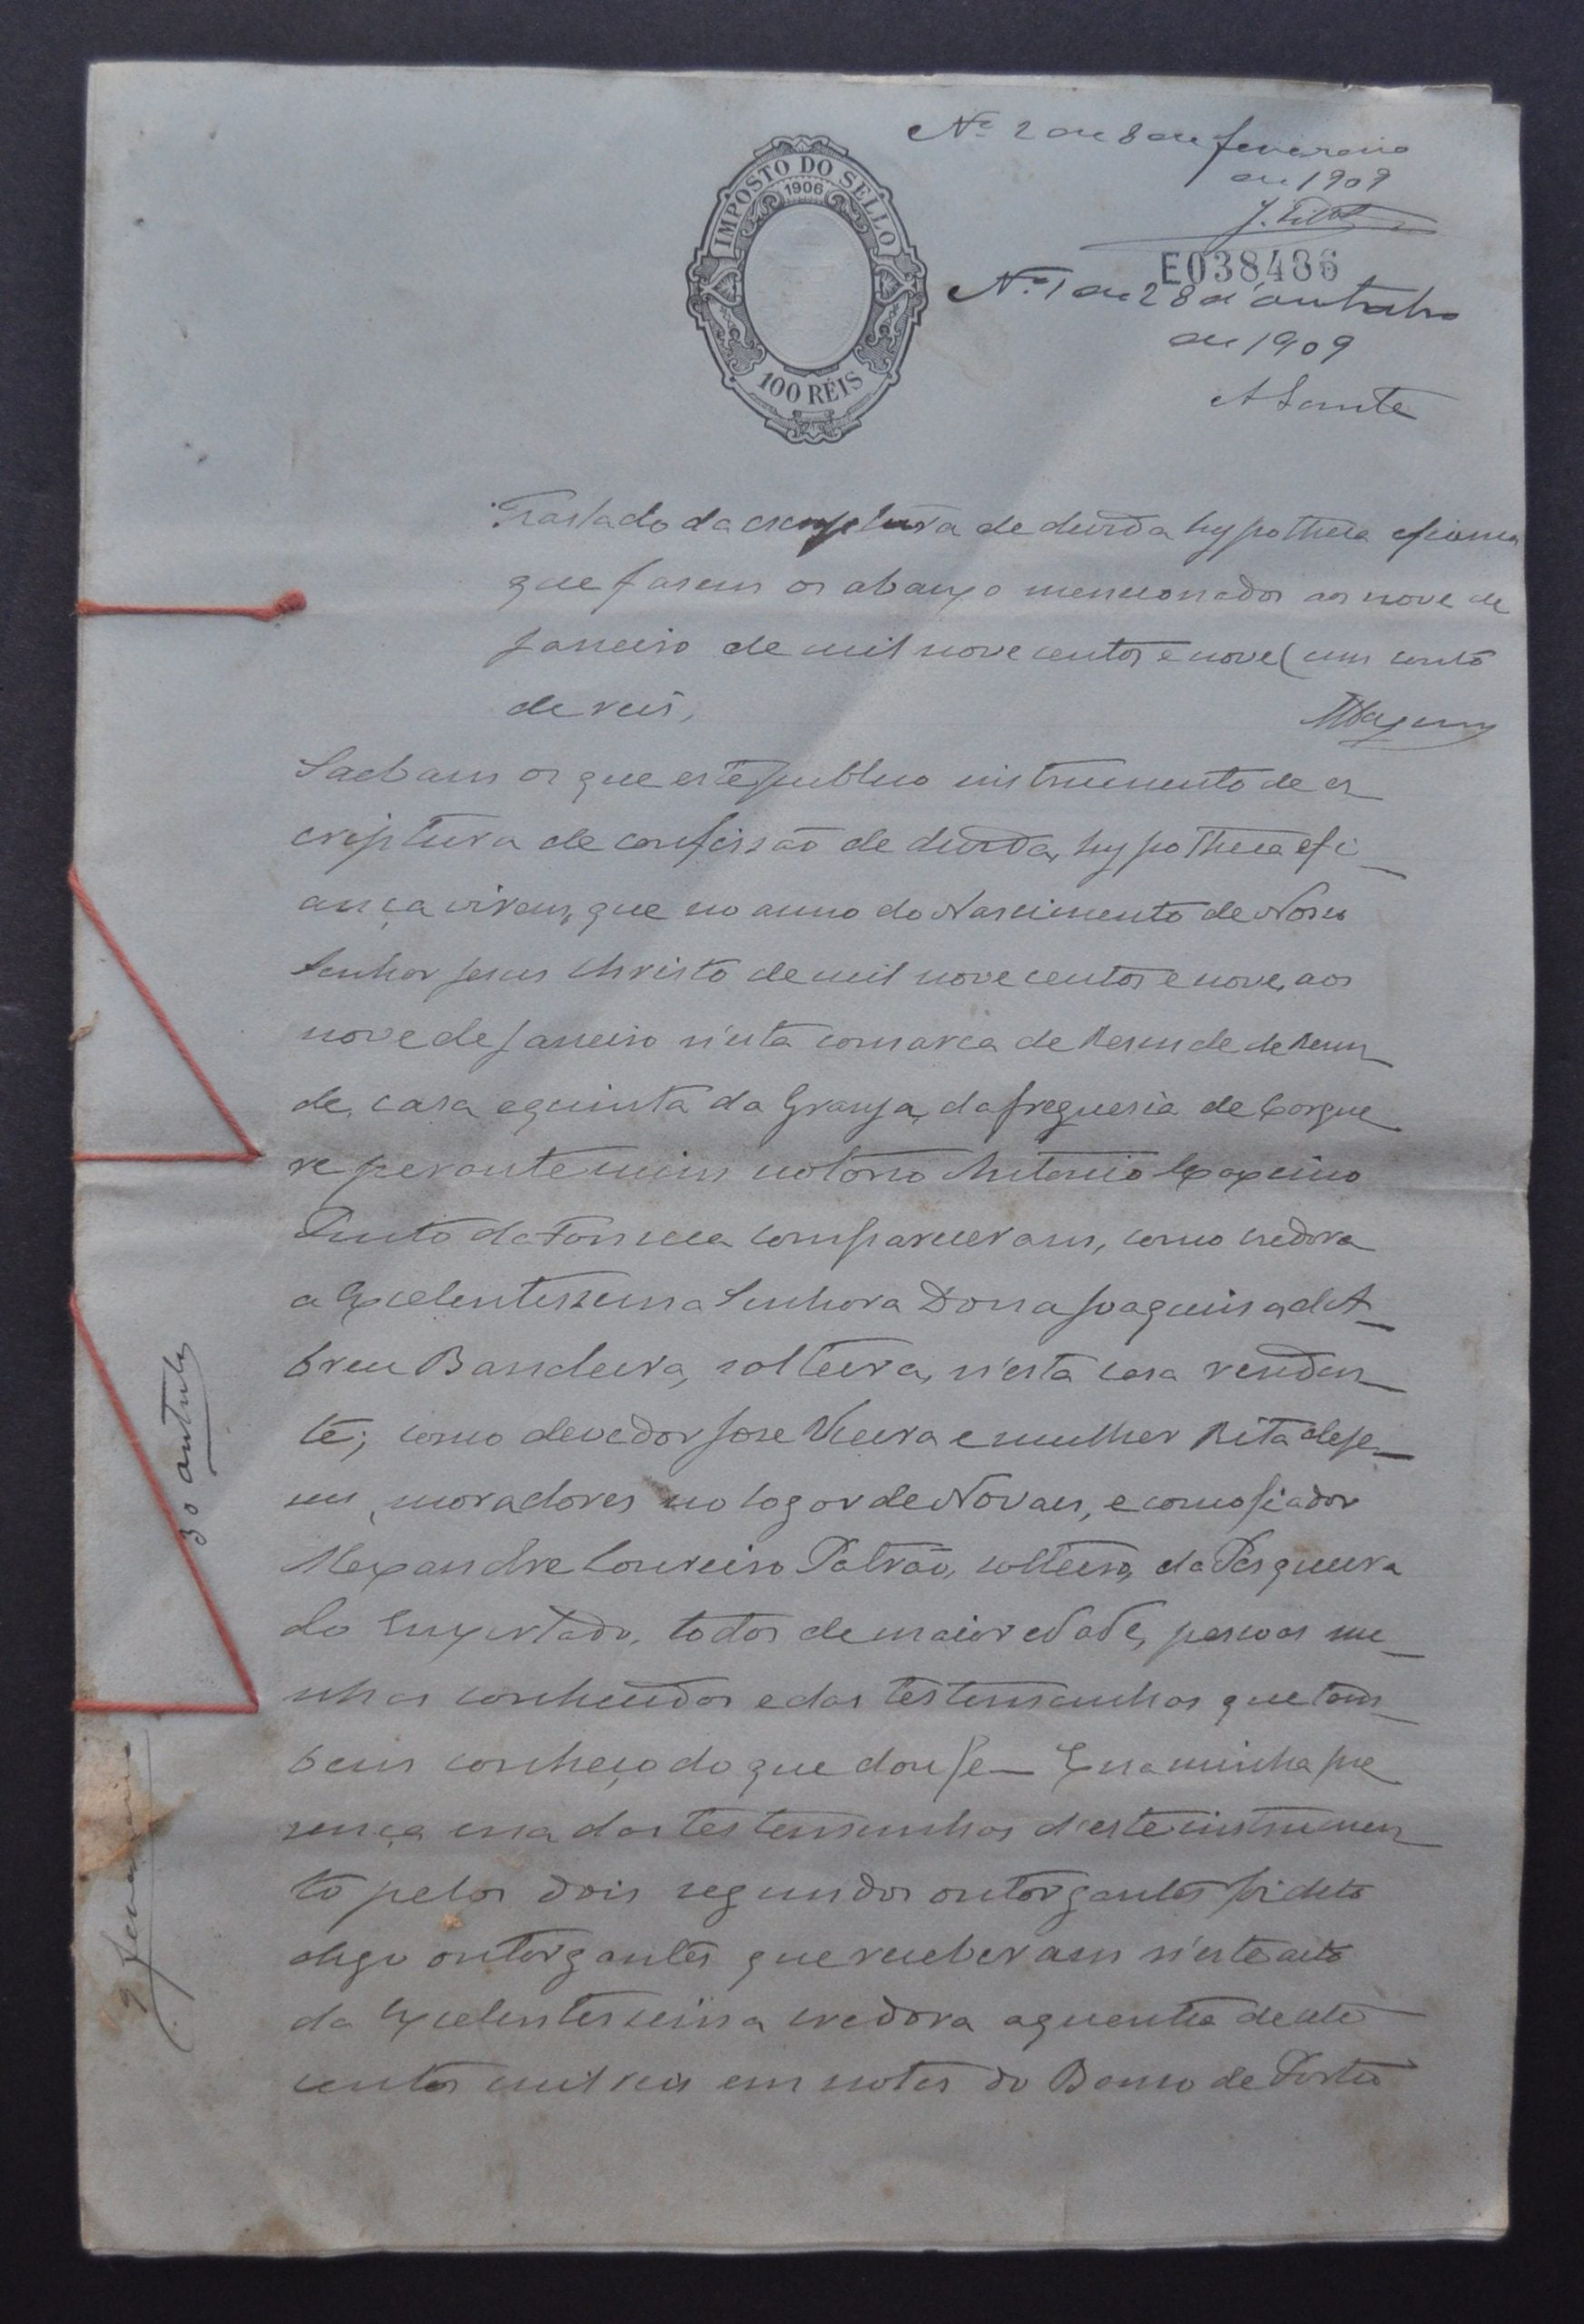 Nº 2 de 8 de fevereiro
de 1909
IMPOSTO DO SELLO
1906
100 RÉIS
E038486
Nº 1 de 28 d'outubro
de 1909
Traslado da escriptura de divida hypotheca e fiança
que fasem os abaixo mencionados aos nove de
Janeiro de mil nove centos e nove (um conto
de reis,
Saibam os que este publico instrumento de es
criptura de confissão de divida, hypotheca e fi
ança virem, que no anno do Nascimento de Nosso
Senhor Jesus Christo de mil nove centos e nove, aos
nove de Janeiro n'esta comarca de Resende de Resen
de, casa e quinta da Granja, da freguesia de Carque
re perante mim notario Antonio
Pinto da Fonseca compareceram, como credora
a Excelentissima Senhora Dona Joaquina d'A
breu Bandeira, solteira, n'esta casa residen
te; como devedor Jose Vieira e mulher Rita de Je
sus, moradores no logar de Novaes, e como fiador
Alexandre Loureiro Patrão, solteiro, da Pesqueira
do Enxertado, todos de maior edade, pessoas mi
nhas conhecidas e das testemunhas que tam
bem conheço do que dou fe— E na minha pre
sença e na das testemunhas d'este instrumen
to pelos dois segundos outorgantes foi dito
digo outorgantes que receberam n'este acto
da Excelentissima credora a quantia de oito
centos mil reis em notas do Banco de Portu
30 outubro
9 fevereiro